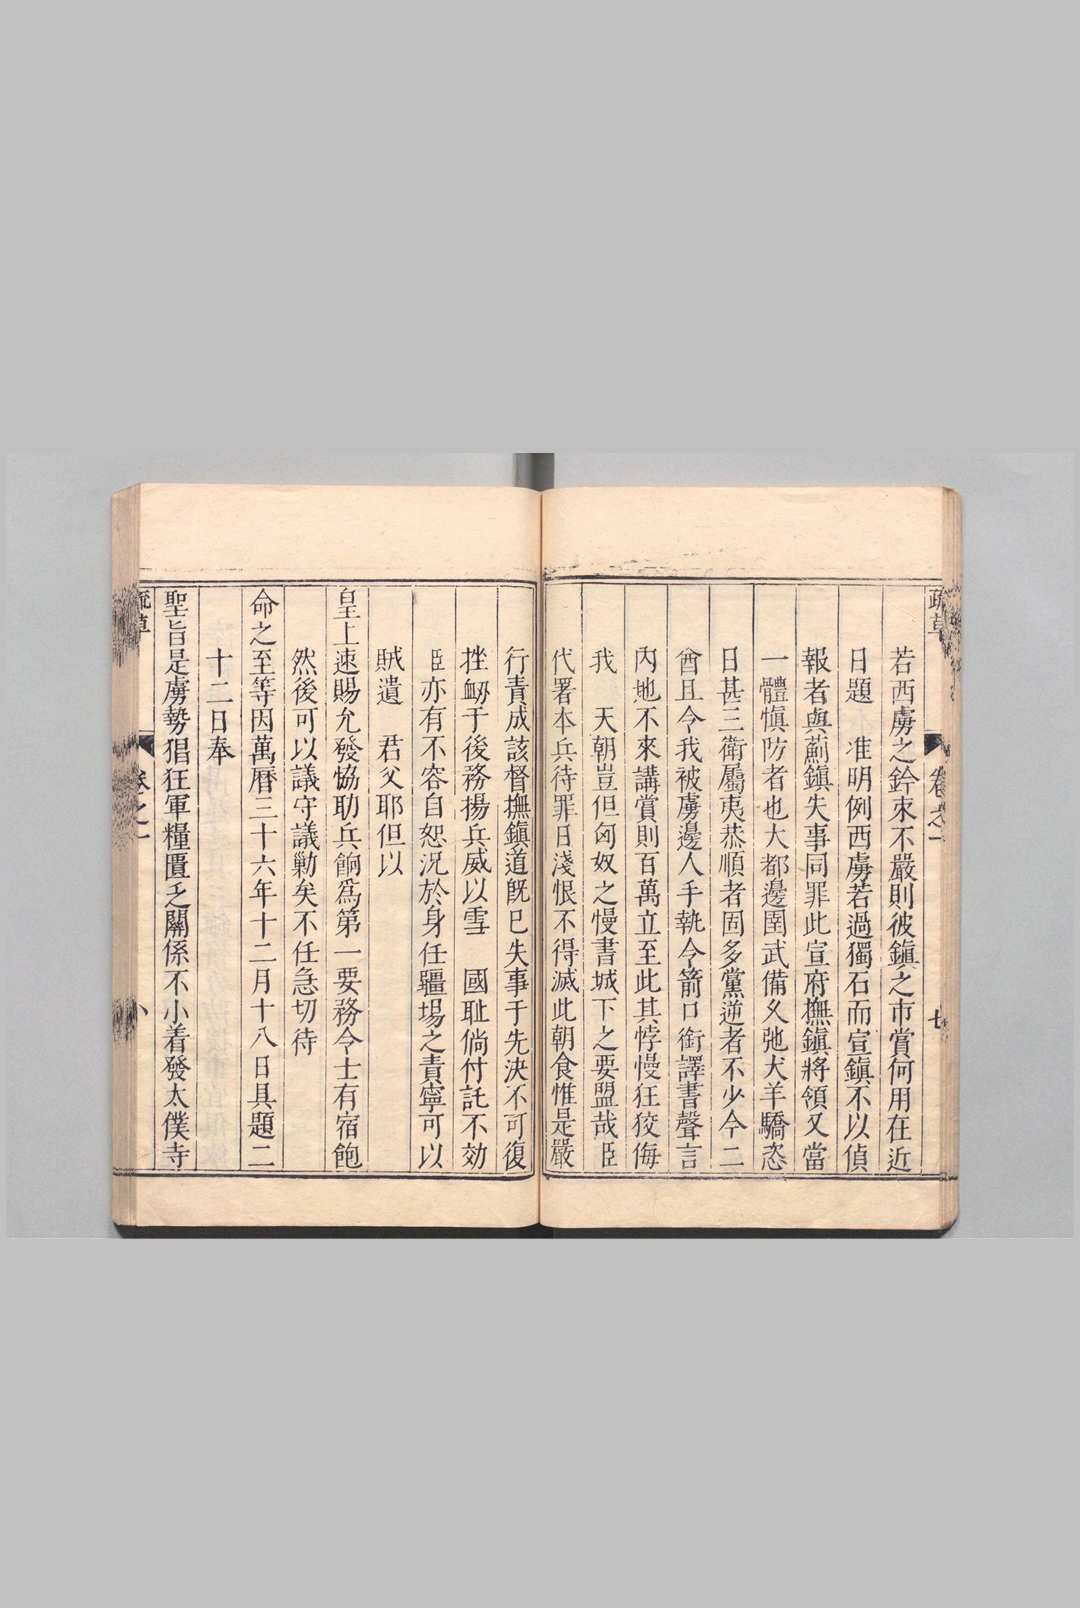 疏草　卷之一　七
若西虜之鈐束不嚴則彼鎮之市賞何用在近
日題　准明例西虜若過獨石而宣鎮不以偵
報者與薊鎮失事同罪此宣府撫鎮將領又當
一體愼防者也大都邊圉武備久弛犬羊驕恣
日甚三衛屬夷恭順者固多黨逆者不少今二
酋且令我被虜邊人手執令箭口銜譯書聲言
內地不來講賞則百萬立至此其悖慢狂狡侮
我　天朝豈但匈奴之慢書城下之要盟哉臣
代署本兵待罪日淺恨不得滅此朝食惟是嚴
行責成該督撫鎮道旣已失事于先決不可復
挫衂于後務揚兵威以雪　國耻倘付託不効
臣亦有不容自恕況於身任疆場之責寧可以
賊遺　君父耶但以
皇上速賜允發恊助兵餉爲第一要務令士有宿飽
然後可以議守議勦矣不任急切待
命之至等因萬曆三十六年十二月十八日具題二
十二日奉
聖旨是虜勢猖狂軍糧匱乏關係不小着發太僕寺
疏草　卷之一　八